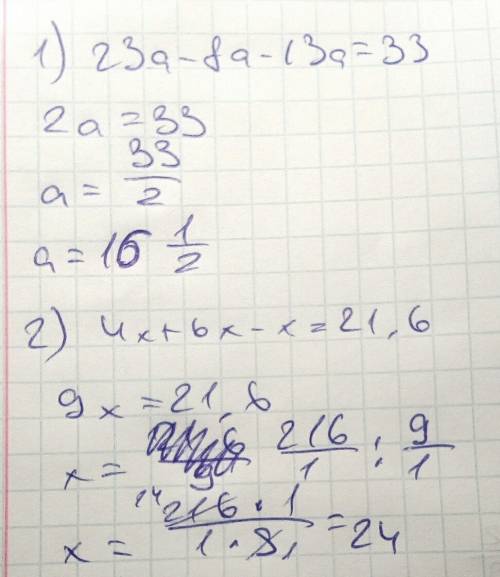 1) 23a-8a-13a=33
2a=33
a=33/2
a=16 1/2
2) 4x+6x-x=21,6
9x=21,6
x= 216/1 : 9/1
x= 24 216·1/1·9 1 =24